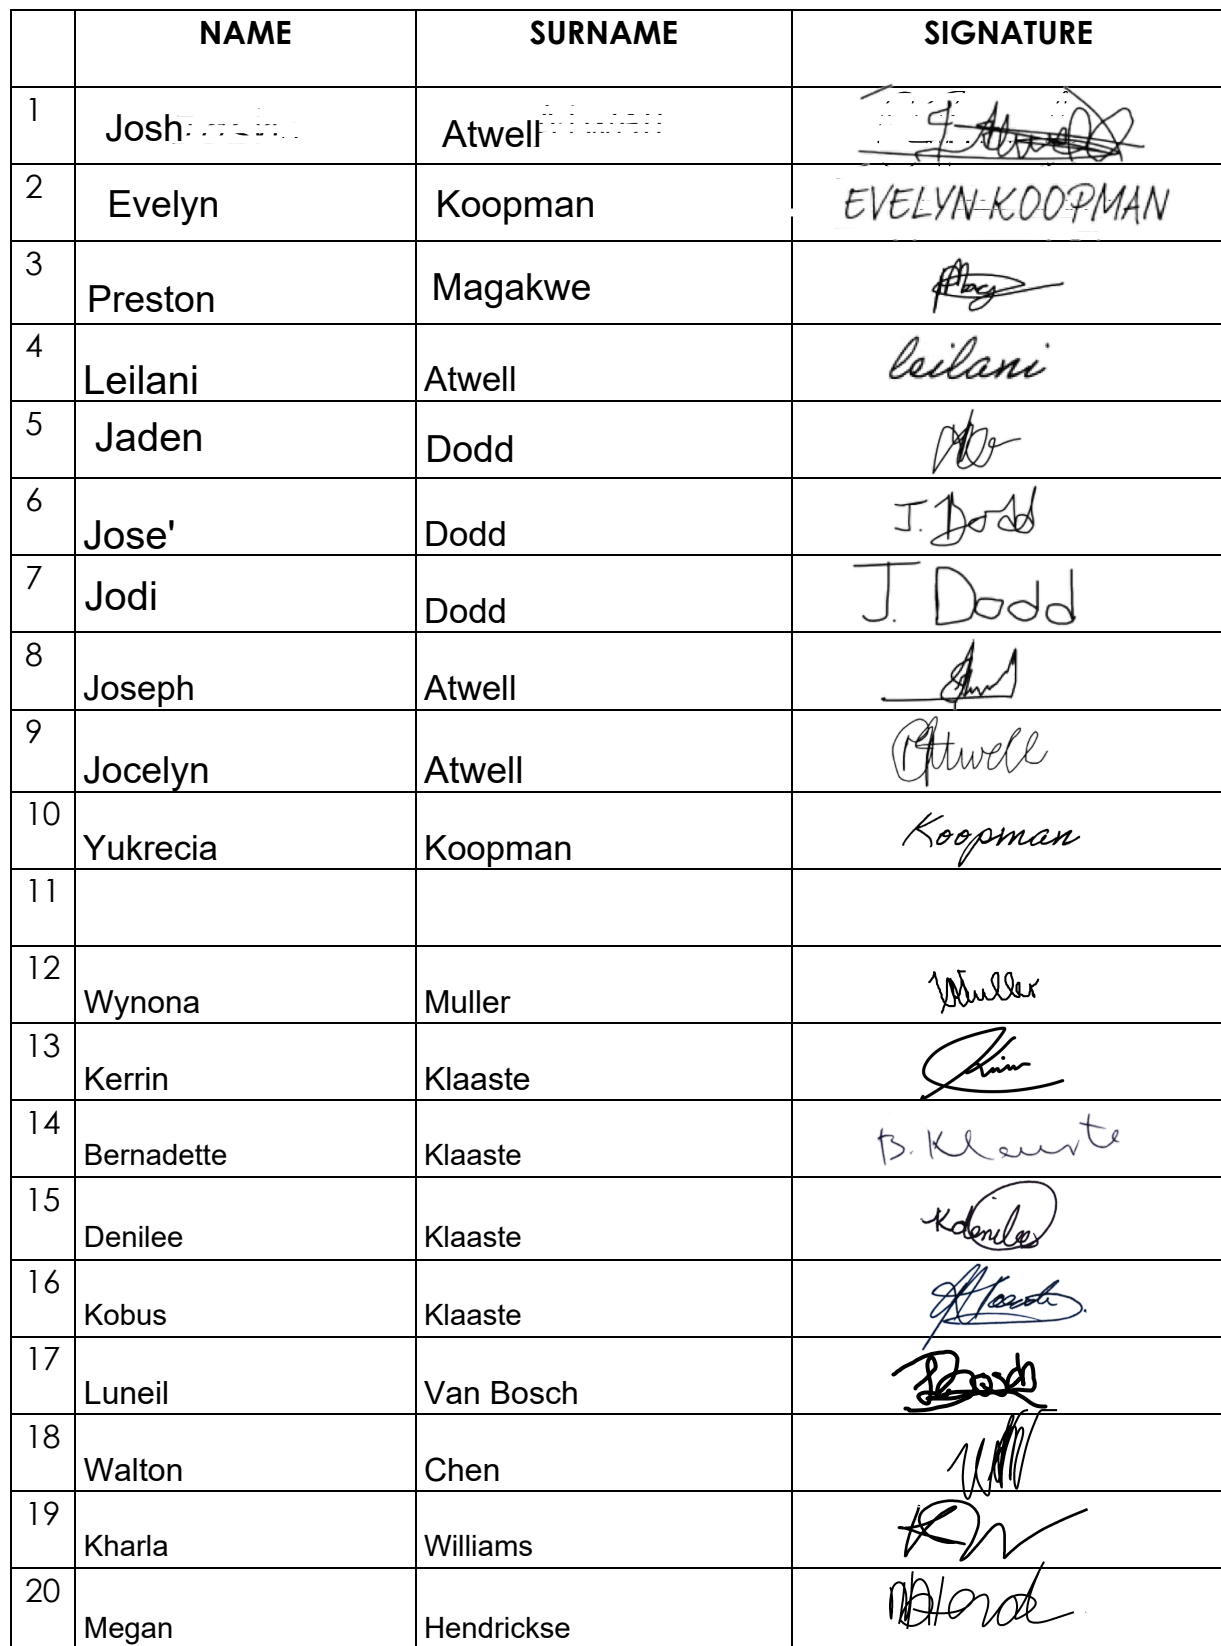 NAME SURNAME SIGNATURE
1 Josh Atwell
2 Evelyn Koopman EVELYN KOOPMAN
3 Preston Magakwe
4 Leilani Atwell leilani
5 Jaden Dodd
6 Jose' Dodd J. Dodd
7 Jodi Dodd J. Dodd
8 Joseph Atwell
9 Jocelyn Atwell
10 Yukrecia Koopman Koopman
11
12 Wynona Muller
13 Kerrin Klaaste
14 Bernadette Klaaste
15 Denilee Klaaste
16 Kobus Klaaste
17 Luneil Van Bosch
18 Walton Chen
19 Kharla Williams
20 Megan Hendrickse